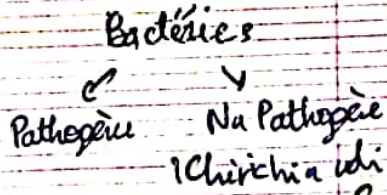 Bactéries
Pathogène Na Pathogène
1Chirichia coli